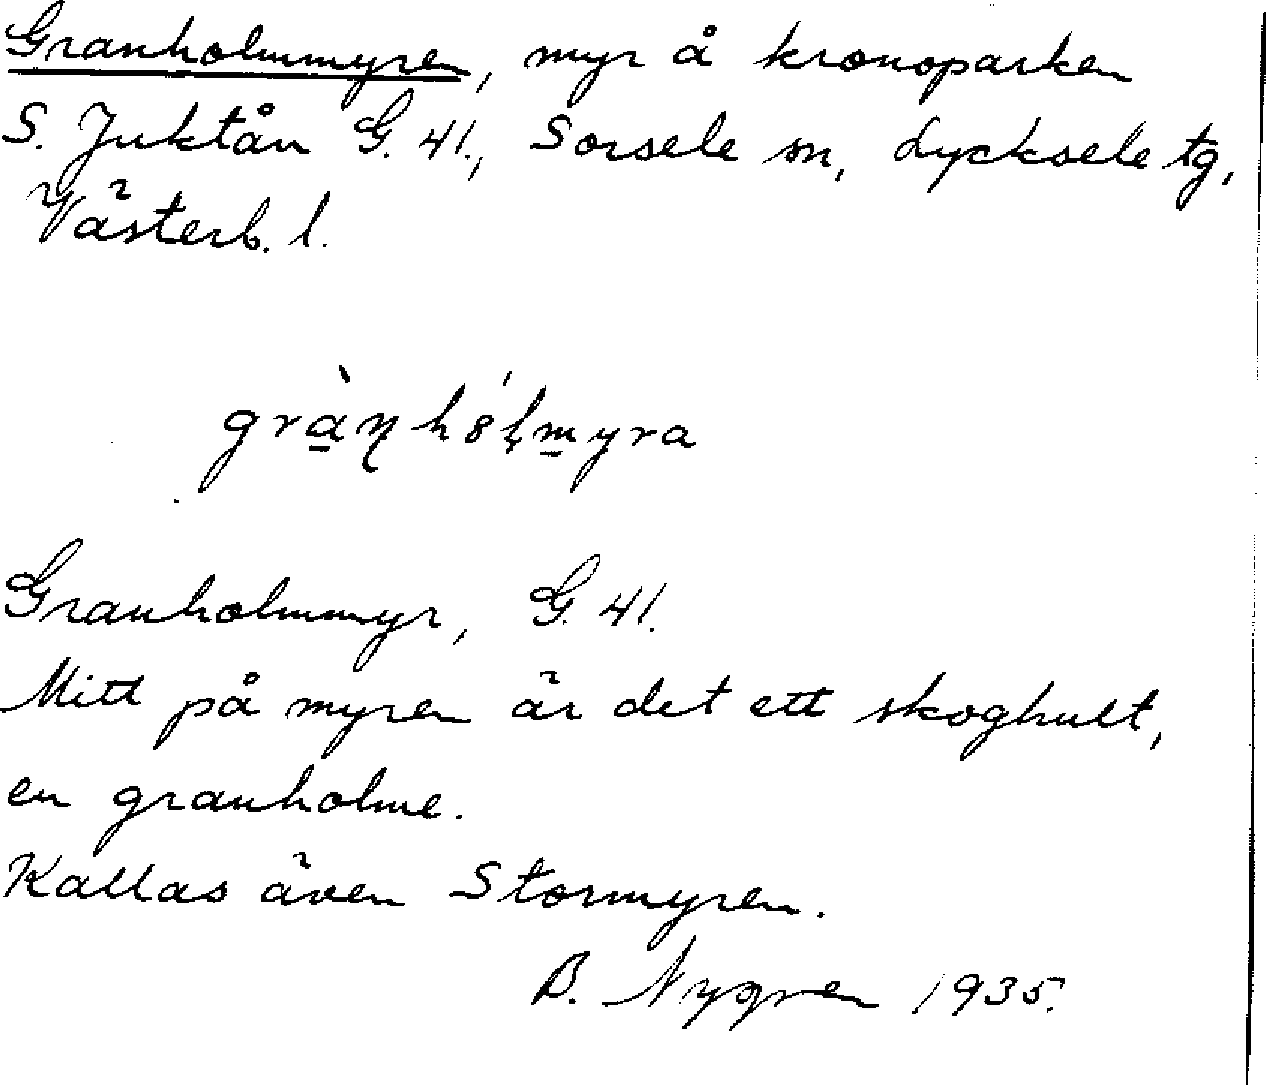 Granholmmyren, myr å kronoparken
S. Juktån G. 41., Sorsele sn, Lycksele tg,
Västerb. l.
grànhólmyra
Granholmmyr, G. 41.
Mitt på myren är det ett skoghult,
en granholme.
Kallas även Stormyren.
B. Nygren 1935.